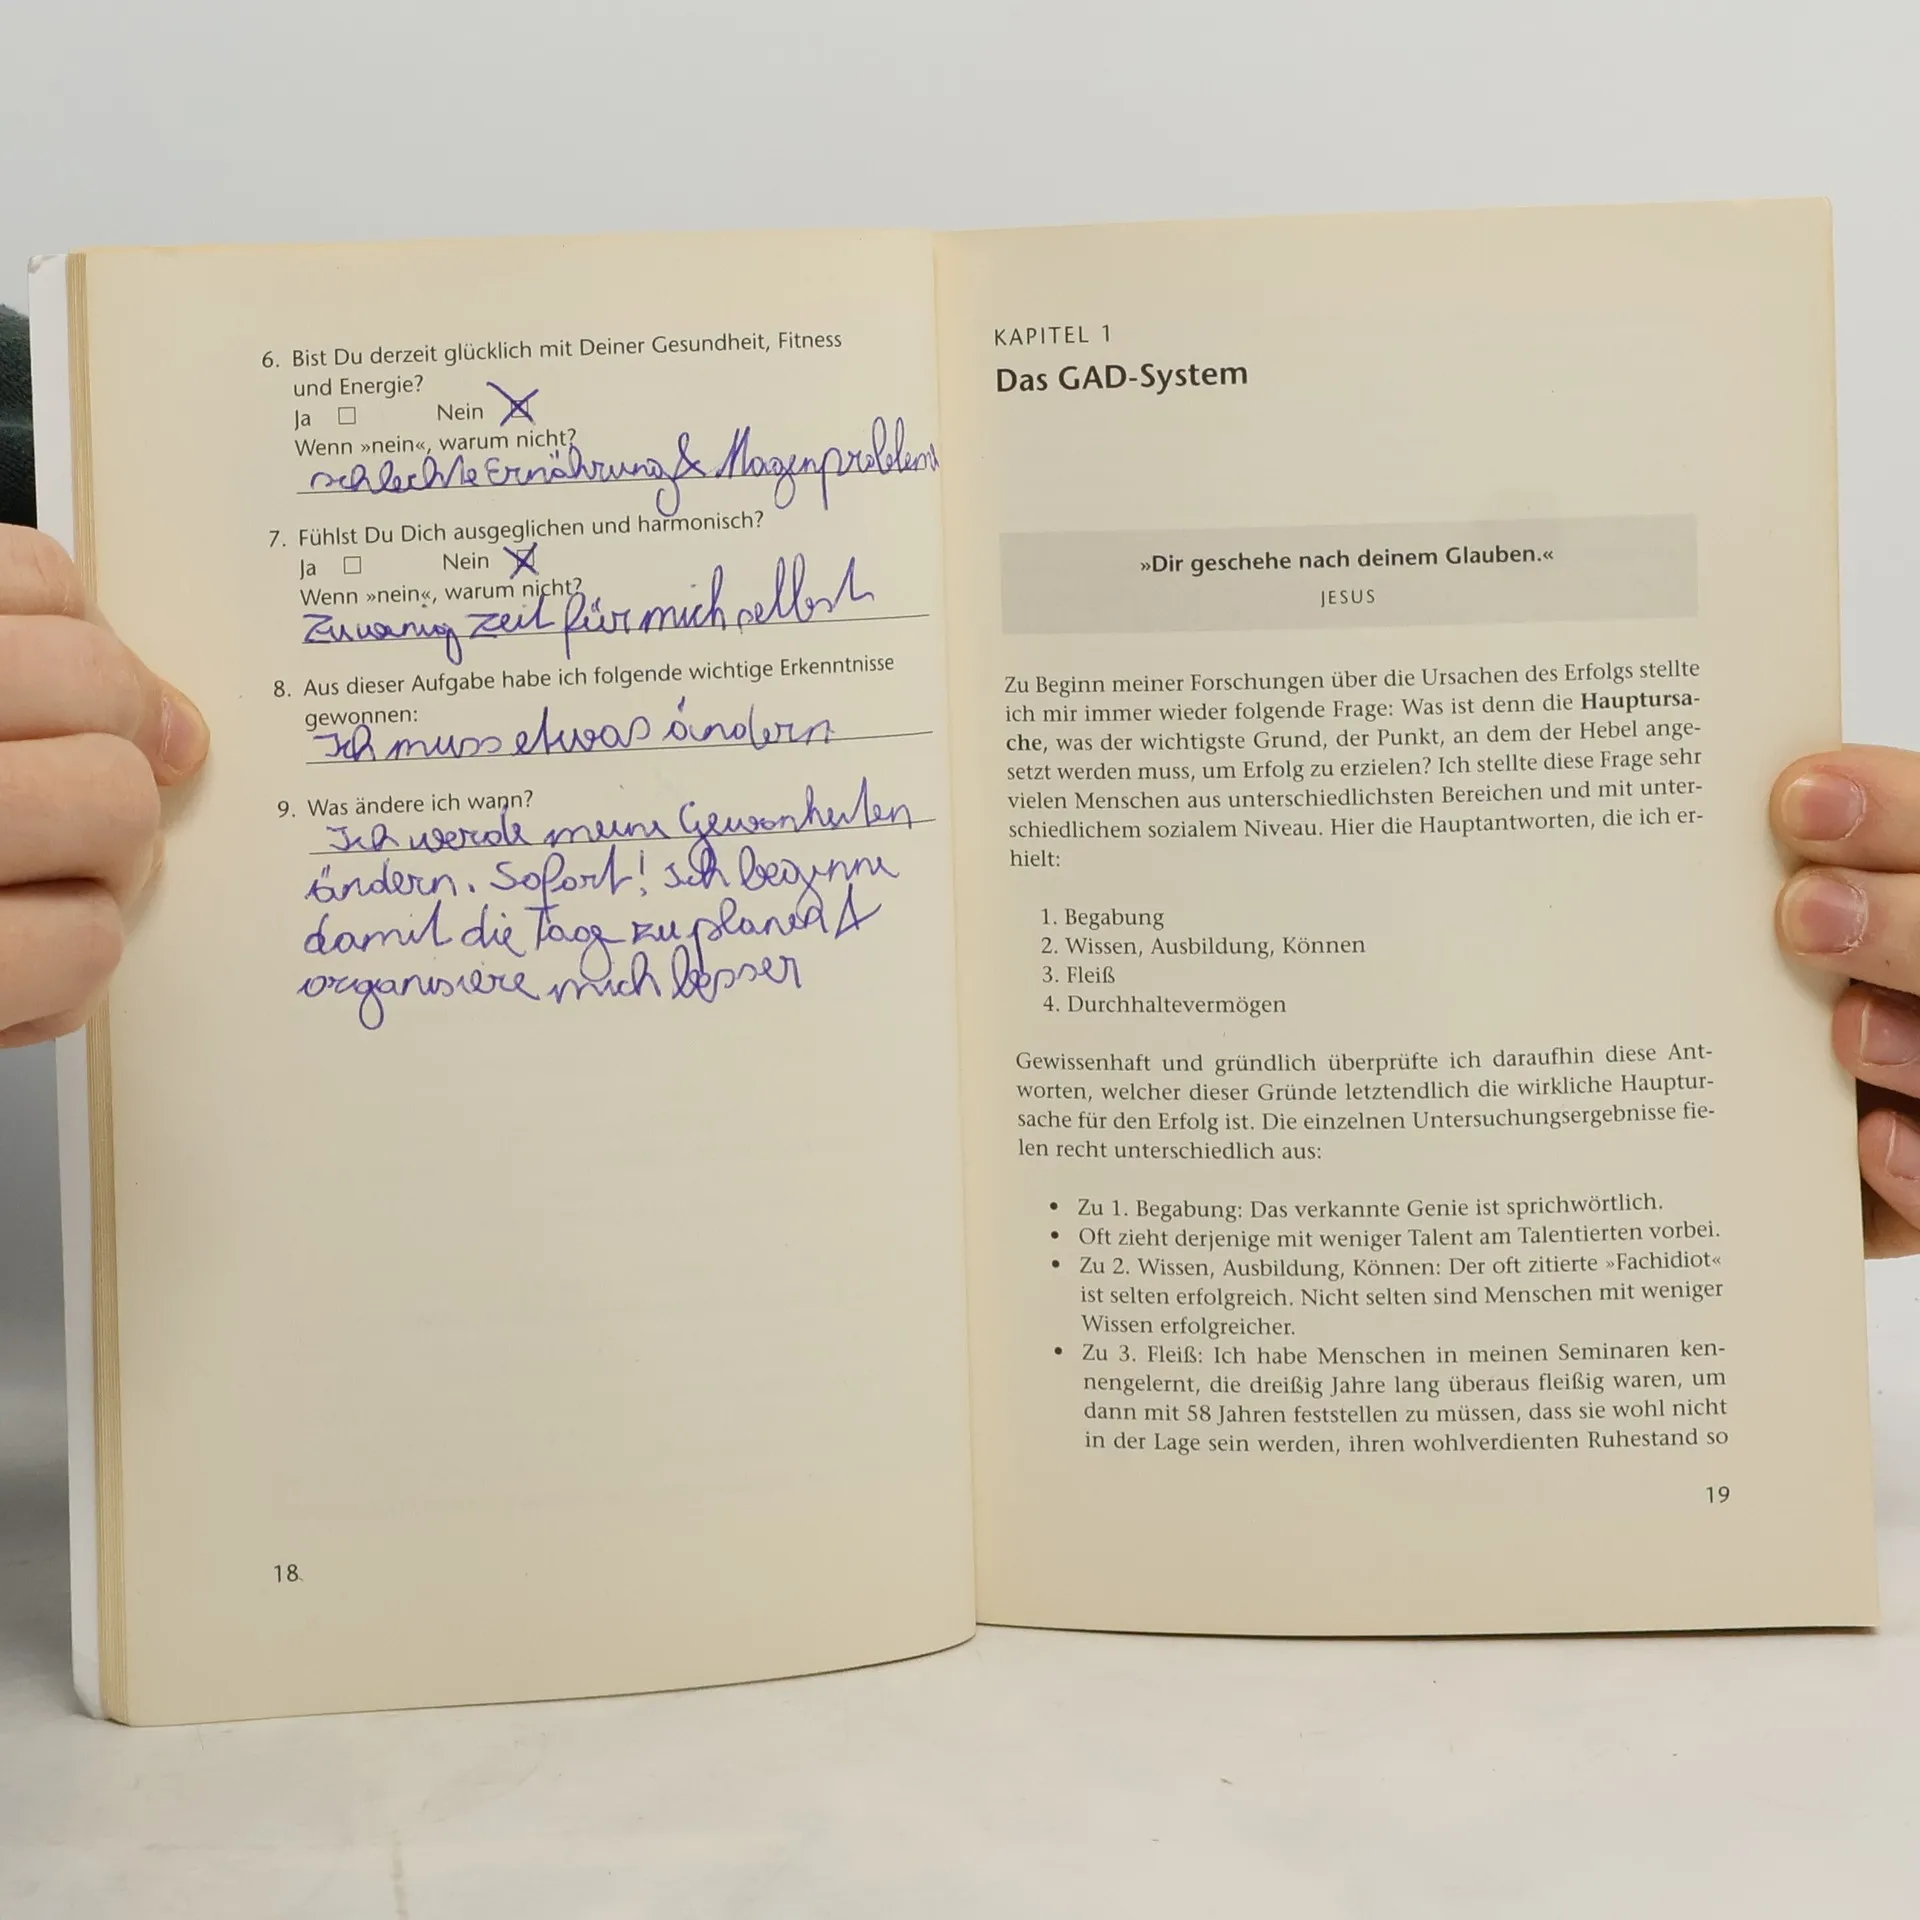 6. Bist Du derzeit glücklich mit Deiner Gesundheit, Fitness
und Energie?
Ja ☐ Nein ☒
Wenn »nein«, warum nicht?
schlechte Ernährung & Magenprobleme
7. Fühlst Du Dich ausgeglichen und harmonisch?
Ja ☐ Nein ☒
Wenn »nein«, warum nicht?
Zu wenig zeit für mich selbst
8. Aus dieser Aufgabe habe ich folgende wichtige Erkenntnisse
gewonnen:
Ich muss etwas ändern
9. Was ändere ich wann?
Ich werde meine Gewonheiten
ändern. Sofort! Ich beginne
damit die Tage zu planen &
organisiere mich besser
18
KAPITEL 1
Das GAD-System
»Dir geschehe nach deinem Glauben.«
JESUS
Zu Beginn meiner Forschungen über die Ursachen des Erfolgs stellte
ich mir immer wieder folgende Frage: Was ist denn die Hauptursa-
che, was der wichtigste Grund, der Punkt, an dem der Hebel ange-
setzt werden muss, um Erfolg zu erzielen? Ich stellte diese Frage sehr
vielen Menschen aus unterschiedlichsten Bereichen und mit unter-
schiedlichem sozialem Niveau. Hier die Hauptantworten, die ich er-
hielt:
1. Begabung
2. Wissen, Ausbildung, Können
3. Fleiß
4. Durchhaltevermögen
Gewissenhaft und gründlich überprüfte ich daraufhin diese Ant-
worten, welcher dieser Gründe letztendlich die wirkliche Hauptur-
sache für den Erfolg ist. Die einzelnen Untersuchungsergebnisse fie-
len recht unterschiedlich aus:
• Zu 1. Begabung: Das verkannte Genie ist sprichwörtlich.
• Oft zieht derjenige mit weniger Talent am Talentierten vorbei.
• Zu 2. Wissen, Ausbildung, Können: Der oft zitierte »Fachidiot«
ist selten erfolgreich. Nicht selten sind Menschen mit weniger
Wissen erfolgreicher.
• Zu 3. Fleiß: Ich habe Menschen in meinen Seminaren ken-
nengelernt, die dreißig Jahre lang überaus fleißig waren, um
dann mit 58 Jahren feststellen zu müssen, dass sie wohl nicht
in der Lage sein werden, ihren wohlverdienten Ruhestand so
19